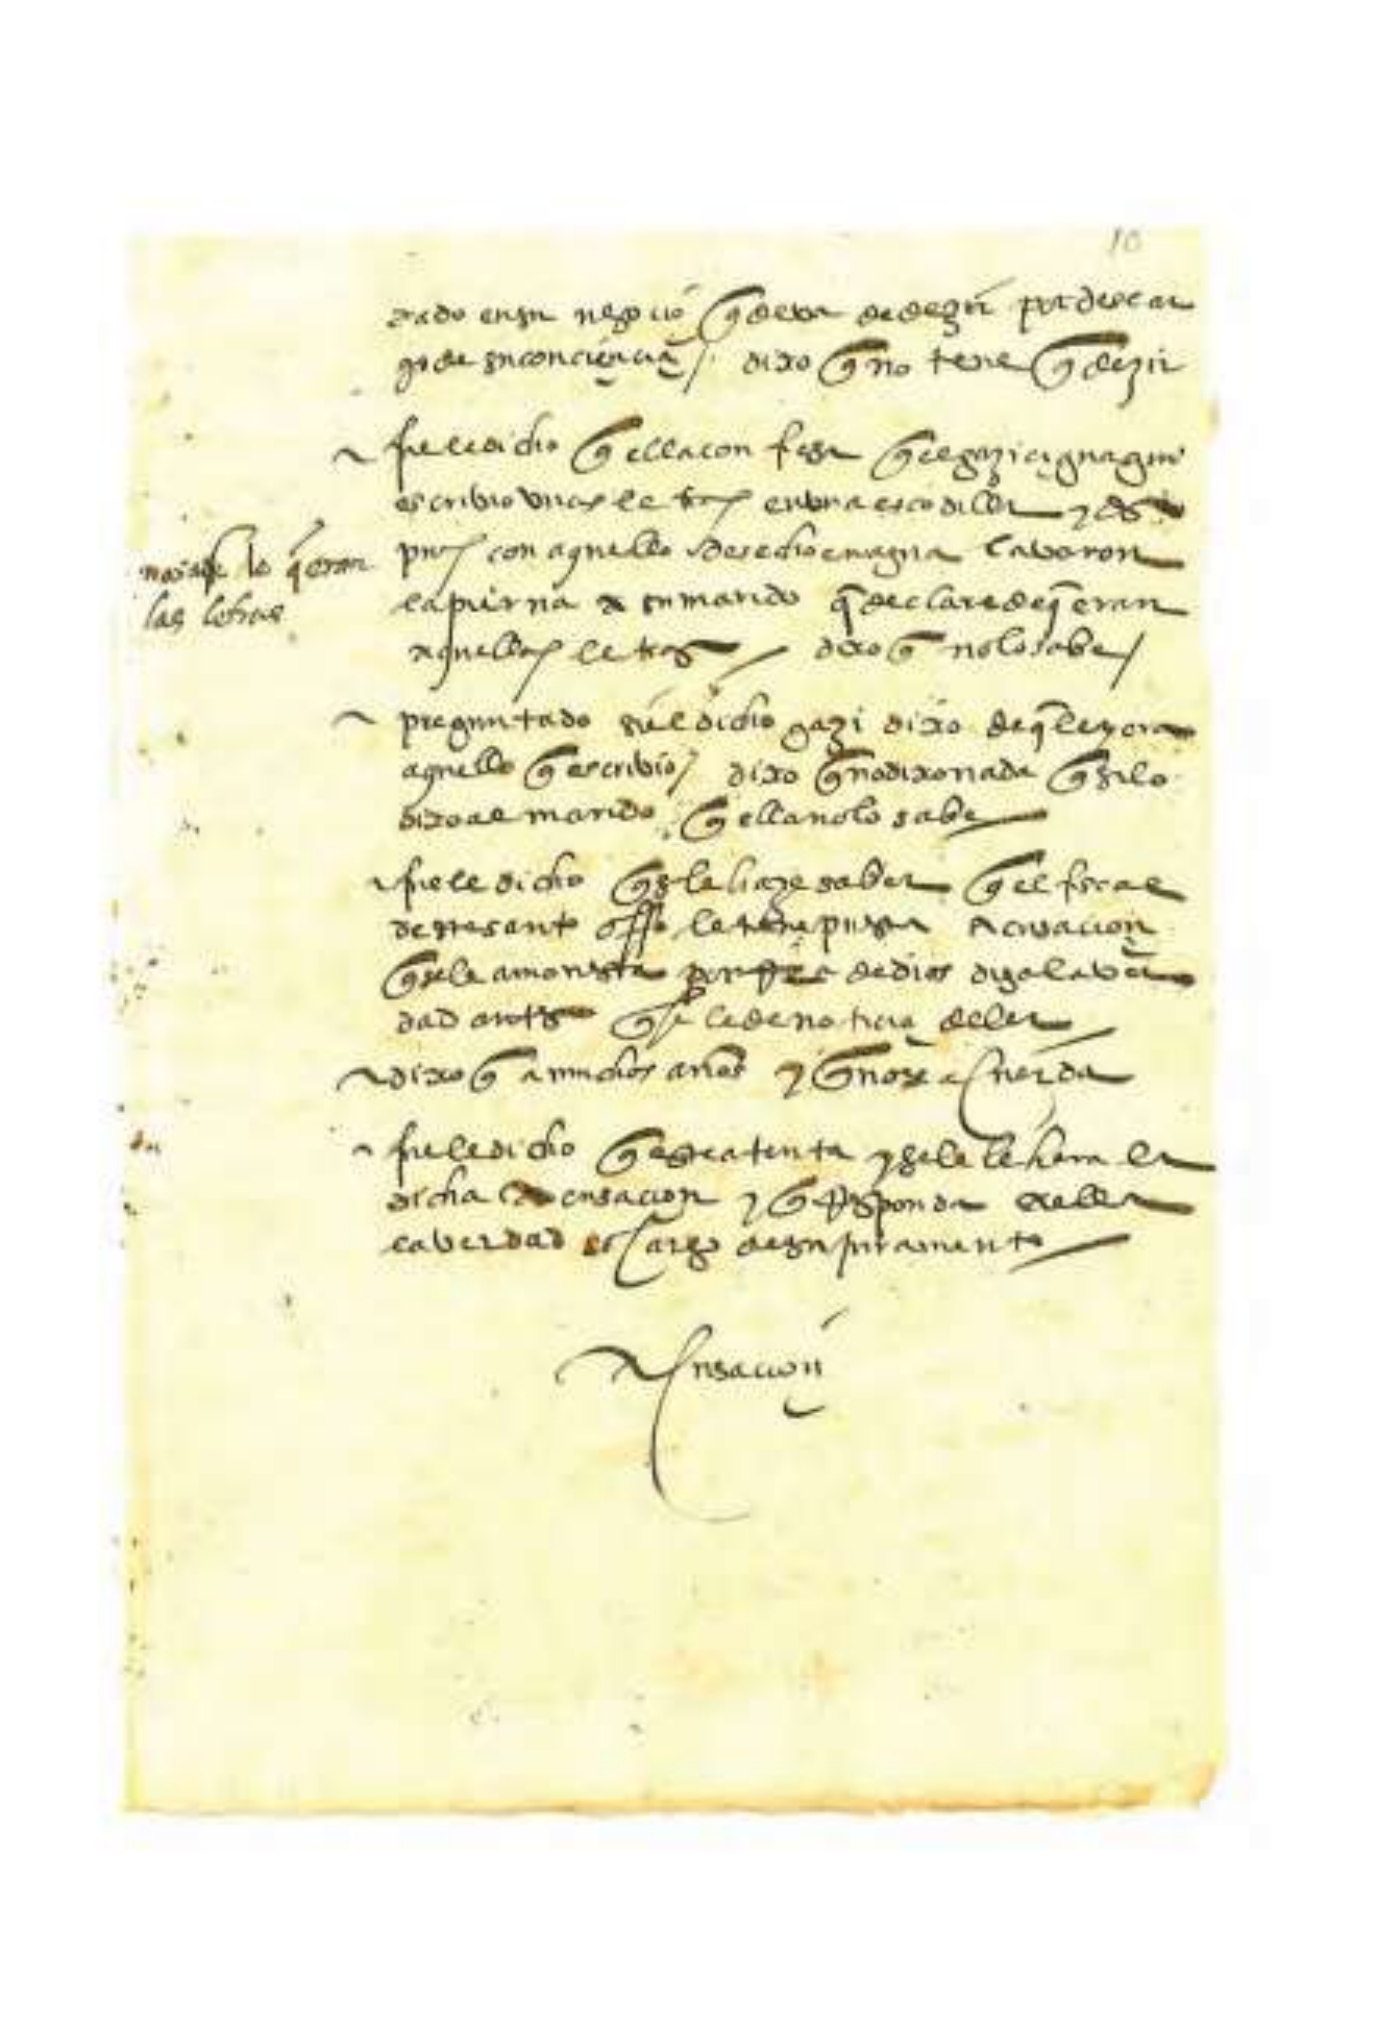 10
dado en su negocio que deva de dezir por descar
go de su conciencia / dixo que no tene que dezir
fuele dicho que ella confesa que el gazi
escrivio unas letras en una escodilla y des
pues con aquello desecho en agua lavaron
la pierna a su marido q declare de q eran
aquellas letras / dixo que no lo sabe /
no sabe lo q eran
las letras
preguntado si el dicho gazi dixo de q ley era
aquello que escrivio / dixo que no dixo nada que si lo
dixo al marido que ella no lo sabe
fuele dicho que se le haze saber que el fiscal
deste santo offo le tiene puesta acusacion
que se le amonesta por de dios diga la ver
dad antes que se le de noticia della
dixo que a muchos años y que no se acuerda
fuele dicho que este atenta y se le lehera la
dicha acusacion y que responda a ella
la verdad so cargo de su juramento
Acusacion